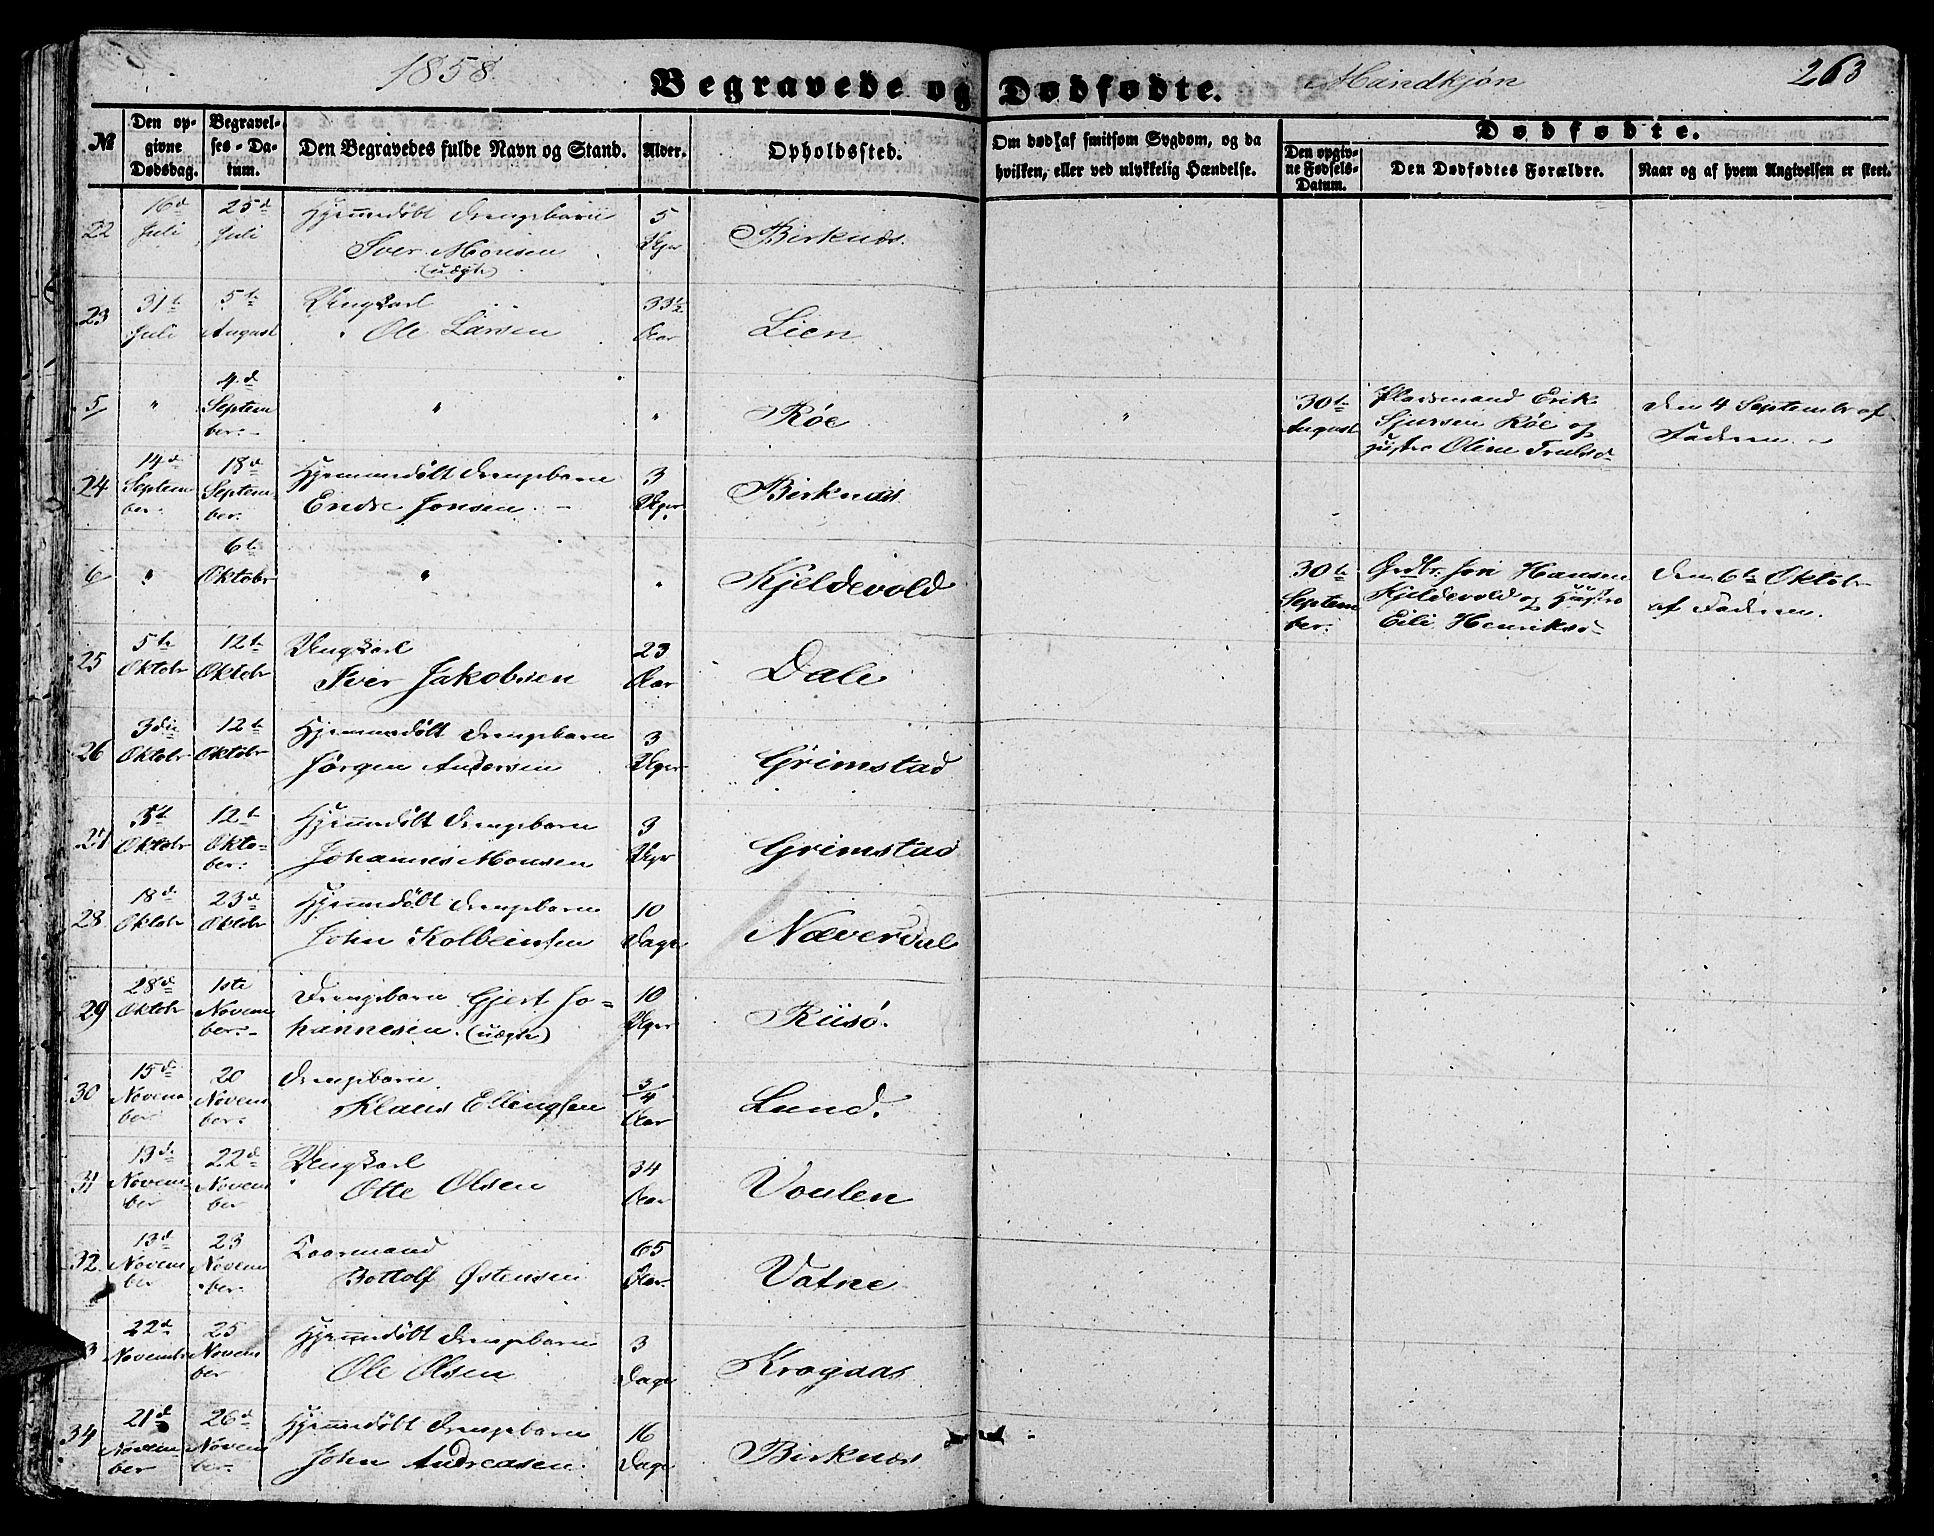 1858. Begravede og Dødfødte. Mandkjøn 263
№ Den opgivne Dødsdag. Begravelses-Datum. Den Begravedes fulde Navn og Stand. Alder. Opholdssted. Om død af smitsom Sygdom, og da hvilken, eller ved ulykkelig Hændelse. Dødfødte.
Den opgivne Fødsels-Datum. Den Dødfødtes Forældre. Naar og af hvem Angivelsen er skeet.
22 16d Juli 25d Juli Hjemmedøbt Drengebarn Iver Monsen (uægte) 5 Uger Birknæs.
23 31te Juli 5te August Ungkarl Ole Larsen 33½ Aar Lien
5 " 4d September " " Røe " 30te August Pladsmand Erik Sjursen Røe og Hustro Oline Trulsd. Den 4 Septembr af Faderen
24 14d September 18d September Hjemmedøbt Drengebarn Endre Jonsen 3 Uger Birknæs
6 " 6te Oktobr " " Kjeldevold 30te September Grdbr. Jon Hansen Kjeldevold og Hustro Eili Henriksd. Den 6te Oktobr af Faderen.
25 5te Oktobr 12te Oktobr Ungkarl Iver Jakobsen 23 Aar Dale
26 3die Oktobr 12te Oktobr Hjemmedøbt Drengebarn Jørgen Andersen 3 Uger Grimstad
27 5te Oktobr 12te Oktober. Hjemmedøbt Drengebarn Johannes Monsen 3 Uger Grimstad
28 18d Oktobr 23d Oktobr Hjemmedøbt Drengebarn John Kolbeinsen 10 Dage Næverdal
29 28d Oktobr 1ste November Drengebarn Gjert Johannesen. (uægte) 10 Uger Riisø.
30 15d November 20 November. Drengebarn Klaus Ellingsen 3/4 Aar Lund.
31 13d November 22d November Ungkarl Otte Olsen 34 Aar Voulen
32 13d November 23 November. Kaarmand Bottolf Østensen 65 Aar. Vatne
3 22d Novembr 25 November Hjemmedøbt Drengebarn Ole Olsen 3 Dage Krogaas
34 21d November 26d November. Hjemmedøbt Drengebarn John Andreasen. 16 Dage Birknæs